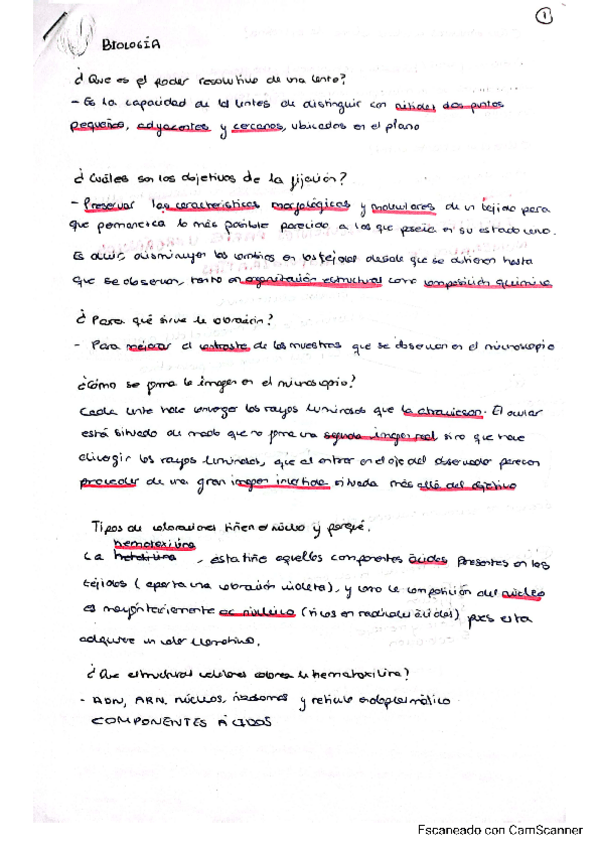 1
BIOLOGÍA
¿Que es el poder resolutivo de una lente?
- Es la capacidad de la lentes de distinguir con nitidez dos puntos
pequeños, adyacentes y cercanos, ubicados en el plano
¿Cuáles son los objetivos de la fijación?
- Preservar las características morfológicas y moleculares de un tejido para
que permanezca lo más posible parecido a los que poseía en su estado vivo.
Es decir, disminuyer los cambios en los tejidos desde que se obtienen hasta
que se observan, tanto en organización estructural como composición química
¿Para qué sirve la coloración?
- Para mejorar el contraste de las muestras que se observan en el microscopio
¿Cómo se forma la imagen en el microscopio?
Cada lente hace converger los rayos luminosos que la atraviesan. El ocular
está situado de modo que no forma una segunda imagen real sino que hace
divergir los rayos luminosos, que al entrar en el ojo del observador parecen
proceder de una gran imagen invertida situada más allá del objetivo
Tipos de coloraciones tiñen el núcleo y porqué.
hematoxilina
La , esta tiñe aquellos componentes ácidos presentes en los
tejidos (aporta una coloración violeta), y como la composición del núcleo
es mayoritariamente ac nucleico (ricos en radicales ácidos) pues esta
adquiere un color
¿Que estructuras celulares colorea la hematoxilina?
- ADN, ARN, núcleos, ribosomas y retículo endoplasmático
COMPONENTES ÁCIDOS
Escaneado con CamScanner